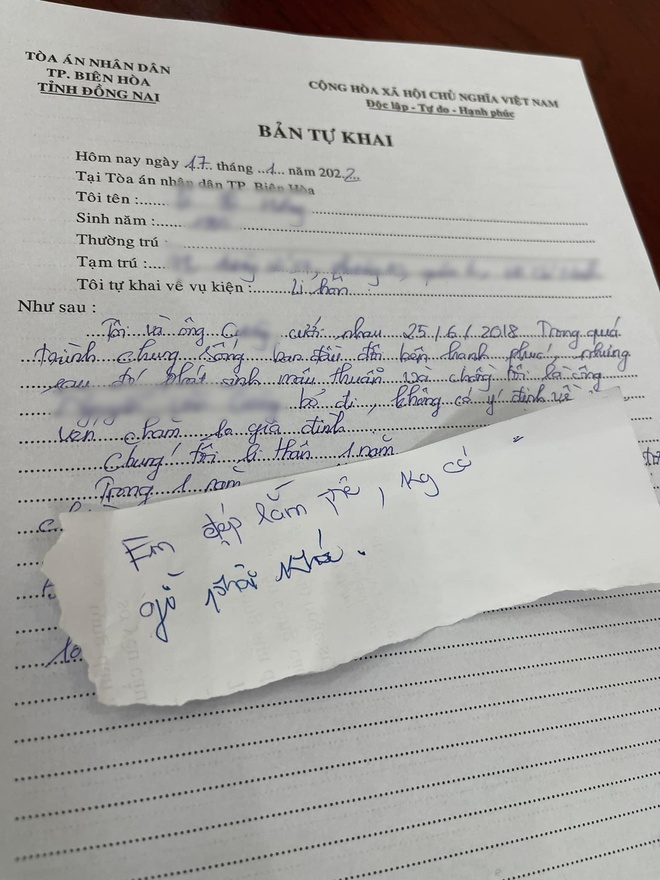 TÒA ÁN NHÂN DÂN
TP. BIÊN HÒA
TỈNH ĐỒNG NAI
CỘNG HÒA XÃ HỘI CHỦ NGHĨA VIỆT NAM
Độc lập - Tự do - Hạnh phúc
BẢN TỰ KHAI
Hôm nay ngày 17 tháng 1 năm 2022
Tại Tòa án nhân dân TP. Biên Hòa
Tôi tên :
Sinh năm :
Thường trú
Tạm trú :
Tôi tự khai về vụ kiện : li hôn
Như sau :
Tôi và ông cưới nhau 25/6/2018 Trong quá
trình chung sống ban đầu hạnh phúc, nhưng
sau đó phát sinh mâu thuẫn và chồng tôi là ông
bỏ đi, không có ý định về
chăm lo gia đình
Chúng tôi li thân 1 năm
Trong 1 năm
Em đẹp lắm, kg có
gì phải khóc.